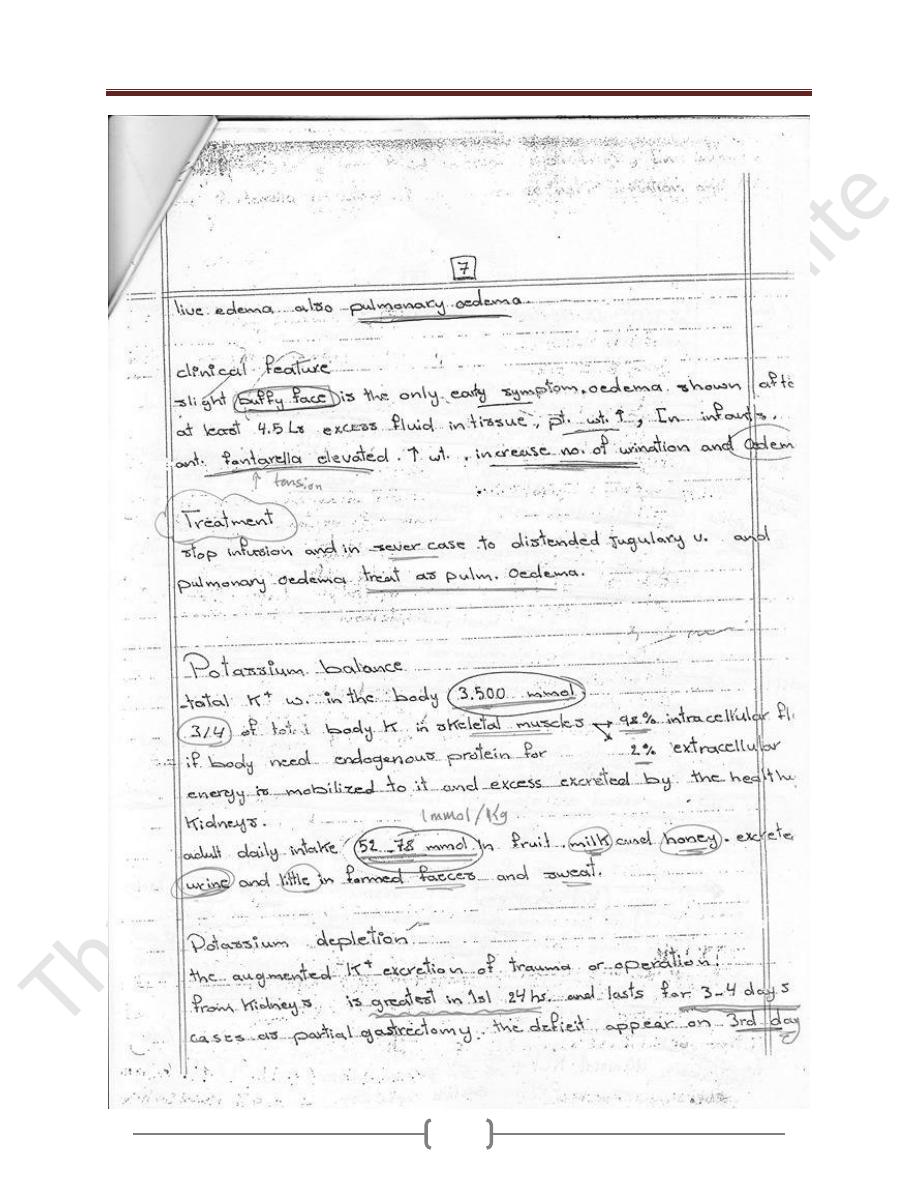 7
live edema also pulmonary oedema
clinical feature
slight puffy face is the only early symptom. oedema shown afte
at least 4.5 Ls excess fluid in tissue, pt. wt. ↑, In infants.
ant. fontarella elevated. ↑ wt. , increase no. of urination and Oedem
↑ tension
Treatment
stop infusion and in sever case to distended jugulary v. and
pulmonary oedema treat as pulm. Oedema.
Potassium balance
total K+ w. in the body 3.500 mmol.
3/4 of total body K in skeletal muscles → 98% intracellular fl
if body need endogenous protein for 2% extracellular
energy is mobilized to it and excess excreted by the health
Kidneys.
1mmol/Kg
adult daily intake 52-78 mmol in fruit, milk and honey. excrete
urine and little in formed faeces and sweat.
Potassium depletion
the augmented K+ excretion of trauma or operation.
from Kidneys is greatest in 1st 24 hs. and lasts for 3-4 days
cases as partial gastrectomy. the deficit appear on 3rd day